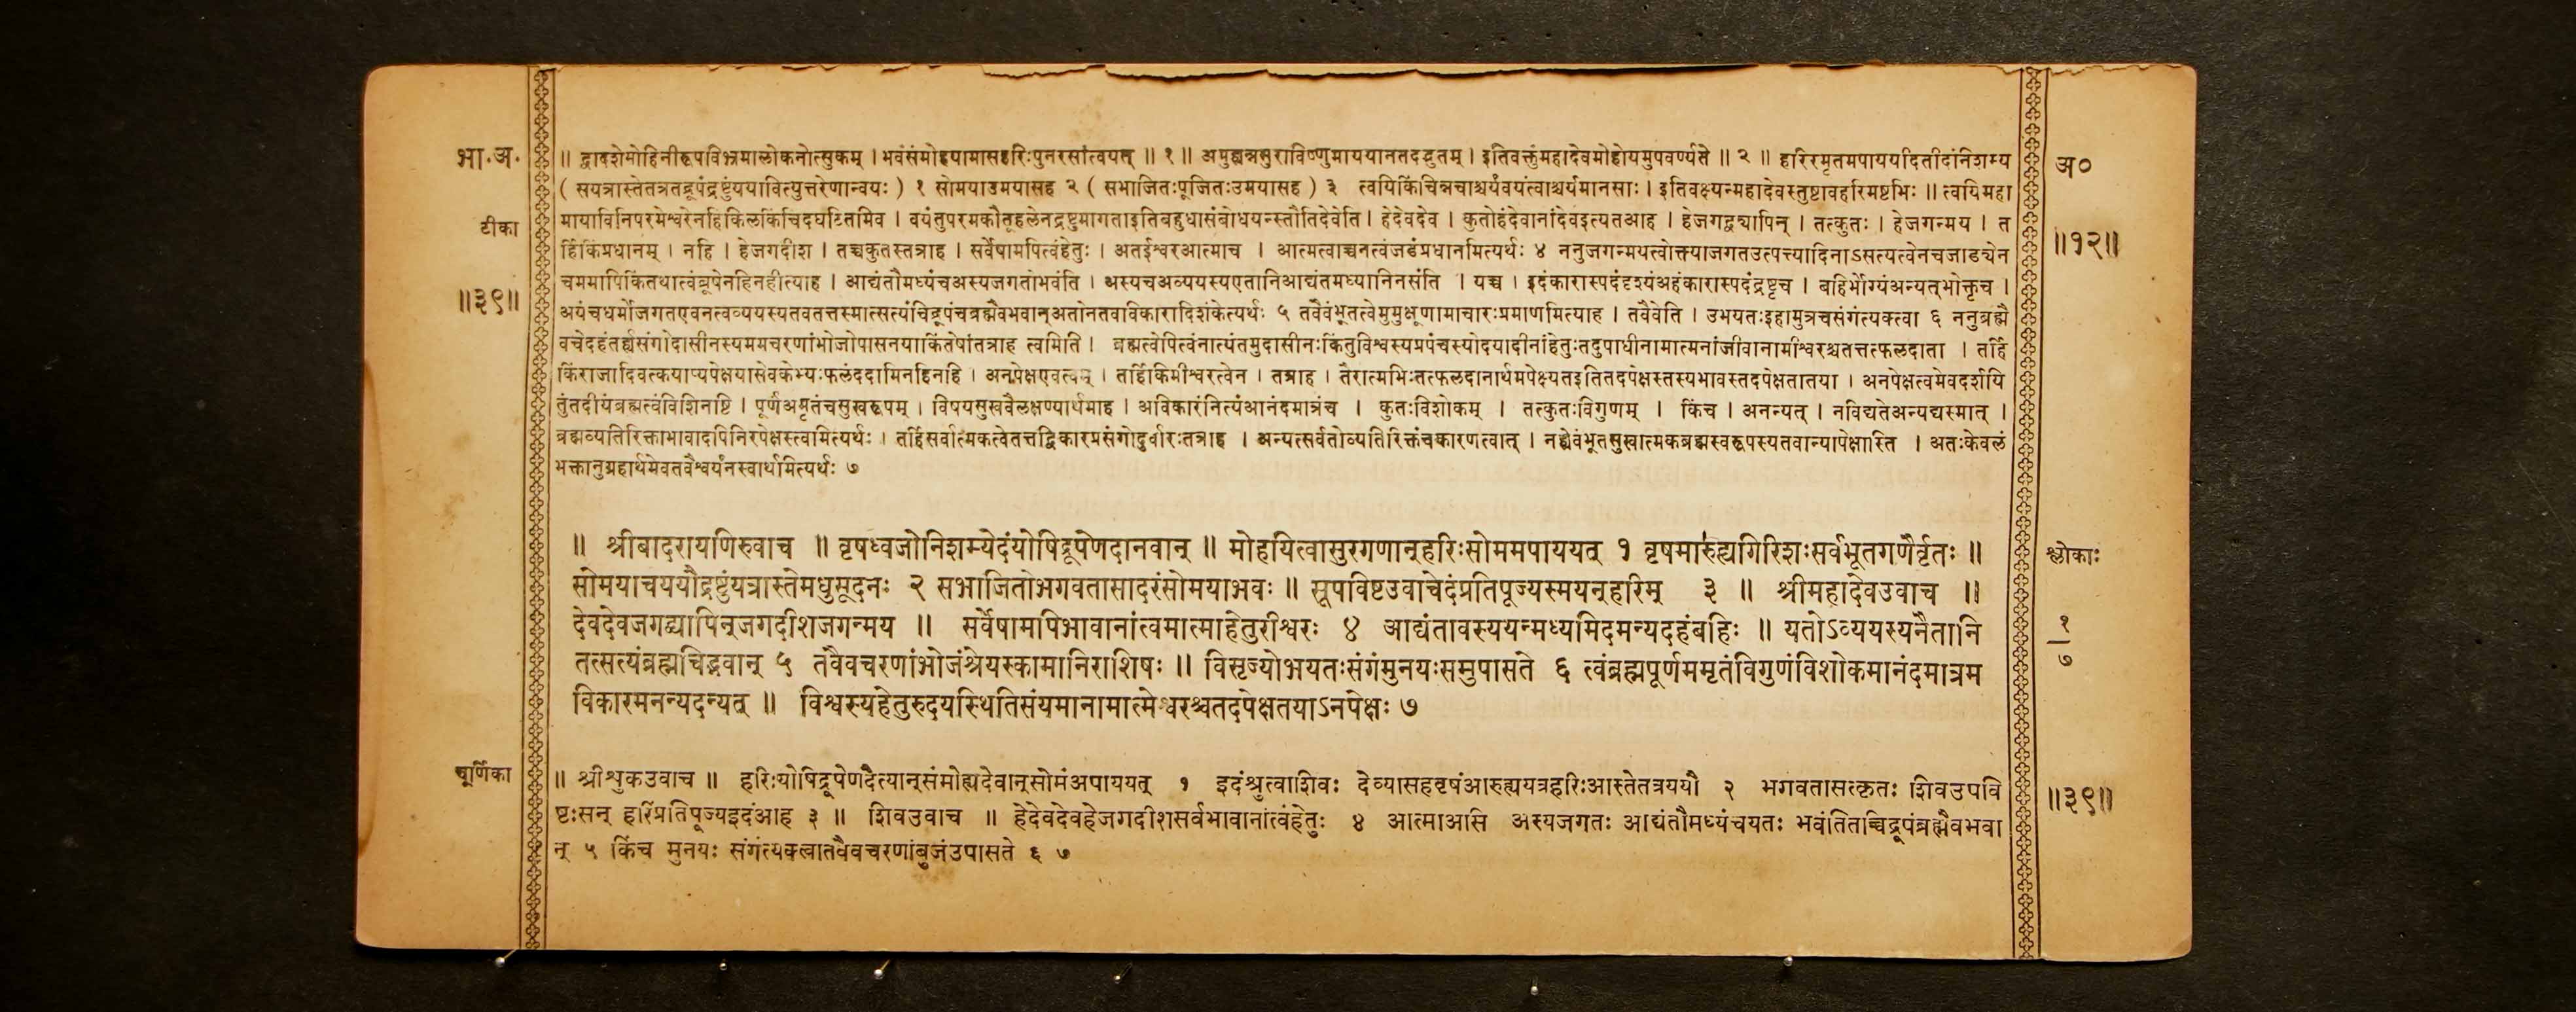 भा.अ.
॥ द्वादशेमोहिनीरूपविभ्रमालोकनोत्सुकम् । भवंसंमोहयामासहरिःपुनरसांत्वयत् ॥ १ ॥ अमुह्यन्नसुराविष्णुमाययानतदद्भुतम् । इतिवक्तुंमहादेवमोहोयमुपवर्ण्यते ॥ २ ॥ हरिरमृतमपाययदितीदंनिशम्य
अ०
( सयत्रास्तेतत्रतद्रूपंद्रष्टुंययावित्युत्तरेणान्वयः ) १ सोमयाउमयासह २ ( सभाजितःपूजितःउमयासह ) ३ त्वयिकिंचिन्नचाश्चर्यंवयंत्वाश्चर्यमानसाः । इतिवक्ष्यन्महादेवस्तुष्टावहरिमष्टभिः ॥ त्वयिमहा
टीका
मायाविनिपरमेश्वरेनहिकिलकिंचिदघटितमिव । वयंतुपरमकौतूहलेनद्रष्टुमागताइतिबहुधासंबोधयन्स्तौतिदेवेति । हेदेवदेव । कुतोहंदेवानांदेवइत्यतआह । हेजगद्व्यापिन् । तत्कुतः । हेजगन्मय । त
र्हिकिंप्रधानम् । नहि । हेजगदीश । तच्चकुतस्तत्राह । सर्वेषामपित्वंहेतुः । अतईश्वरआत्माच । आत्मत्वाच्चनत्वंजडंप्रधानमित्यर्थः ४ ननुजगन्मयत्वोक्त्याजगतउत्पत्त्यादिनाऽसत्यत्वेनचजाड्येन
॥१२॥
चममापिकिंतथात्वंब्रूषेनहिनहीत्याह । आद्यंतौमध्यंचअस्यजगतोभवंति । अस्यचअव्ययस्यएतानिआद्यंतमध्यानिनसंति । यच्च । इदंकारास्पदंदृश्यंअहंकारास्पदंद्रष्टृच । बहिर्भोग्यंअन्यत्‌भोक्तृच ।
॥३९॥
अयंचधर्मोजगतएवनत्वव्ययस्यतवतत्तस्मात्सत्यंचिद्रूपंचब्रह्मैवभवान्‌अतोनतवविकारादिशंकेत्यर्थः ५ तवैवंभूतत्वेमुमुक्षूणामाचारःप्रमाणमित्याह । तवैवेति । उभयतःइहामुत्रचसंगंत्यक्त्वा ६ ननुब्रह्मै
वचेदहंतर्ह्यसंगोदासीनस्यममचरणांभोजोपासनयाकिंतेषांतत्राह त्वमिति । ब्रह्मत्वेपित्वंनात्यंतमुदासीनःकिंतुविश्वस्यप्रपंचस्योदयादीनांहेतुःतदुपाधीनामात्मनांजीवानामीश्वरश्चतत्तत्फलदाता । तर्हि
किंराजादिवत्कयाप्यपेक्षयासेवकेभ्यःफलंददामिनहिनहि । अनपेक्षएवत्वम् । तर्हिकिमीश्वरत्वेन । तत्राह । तैरात्मभिःतत्फलदानार्थमपेक्ष्यतइतितदपेक्षस्तस्यभावस्तदपेक्षतातया । अनपेक्षत्वमेवदर्शयि
तुंतदीयंब्रह्मत्वंविशिनष्टि । पूर्णंअमृतंचसुखरूपम् । विषयसुखवैलक्षण्यार्थमाह । अविकारंनित्यंआनंदमात्रंच । कुतःविशोकम् । तत्कुतःविगुणम् । किंच । अनन्यत् । नविद्यतेअन्यद्यस्मात् ।
ब्रह्मव्यतिरिक्ताभावादपिनिरपेक्षस्त्वमित्यर्थः । तर्हिसर्वात्मकत्वेतत्तद्विकारप्रसंगोदुर्वारःतत्राह । अन्यत्सर्वतोव्यतिरिक्तंचकारणत्वात् । नह्येवंभूतसुखात्मकब्रह्मस्वरूपस्यतवान्यापेक्षास्ति । अतःकेवलं
भक्तानुग्रहार्थमेवतवैश्वर्यंनस्वार्थमित्यर्थः ७
॥ श्रीबादरायणिरुवाच ॥ वृषध्वजोनिशम्येदंयोषिद्रूपेणदानवान् ॥ मोहयित्वासुरगणान्‌हरिःसोममपाययत् १ वृषमारुह्यगिरिशःसर्वभूतगणैर्वृतः ॥
श्लोकाः
सोमयाचययौद्रष्टुंयत्रास्तेमधुसूदनः २ सभाजितोभगवतासादरंसोमयाभवः ॥ सूपाविष्टउवाचेदंप्रतिपूज्यस्मयन्‌हरिम् ३ ॥ श्रीमहादेवउवाच ॥
देवदेवजगद्व्यापिन्‌जगदीशजगन्मय ॥ सर्वेषामपिभावानांत्वमात्माहेतुरीश्वरः ४ आद्यंतावस्ययन्मध्यमिदमन्यदहंबहिः ॥ यतोऽव्ययस्यनैतानि
१
७
तत्सत्यंब्रह्मचिद्भवान् ५ तवैवचरणांभोजंश्रेयस्कामानिराशिषः ॥ विसृज्योभयतःसंगंमुनयःसमुपासते ६ त्वंब्रह्मपूर्णममृतंविगुणंविशोकमानंदमात्रम
विकारमनन्यदन्यत् ॥ विश्वस्यहेतुरुदयस्थितिसंयमानामात्मेश्वरश्चतदपेक्षतयाऽनपेक्षः ७
चूर्णिका
॥ श्रीशुकउवाच ॥ हरिःयोषिद्रूपेणदैत्यान्‌संमोह्यदेवान्‌सोमंअपाययत् १ इदंश्रुत्वाशिवः देव्यासहवृषंआरुह्ययत्रहरिःआस्तेतत्रययौ २ भगवतासत्कृतः शिवउपवि
॥३९॥
ष्टःसन् हरिंप्रतिपूज्यइदंआह ३ ॥ शिवउवाच ॥ हेदेवदेवहेजगदीशसर्वभावानांत्वंहेतुः ४ आत्माआसि अस्यजगतः आद्यंतौमध्यंचयतः भवंतितच्चिद्रूपंब्रह्मैवभवा
न् ५ किंच मुनयः संगंत्यक्त्वातवैवचरणांबुजंउपासते ६ ७